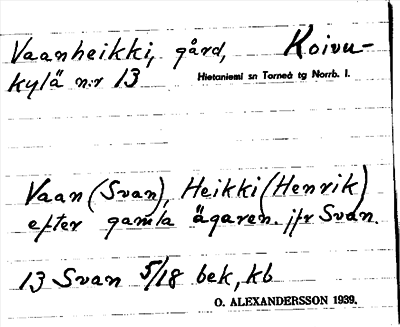 Vaanheikki, gård, Koivu-
kylä n:r 13 Hietaniemi sn Torneå tg Norrb. l.
Vaan (Svan), Heikki (Henrik)
efter gamla ägaren. jfr Svan.
13 Svan 5/18 bek, kb
O. ALEXANDERSSON 1939.